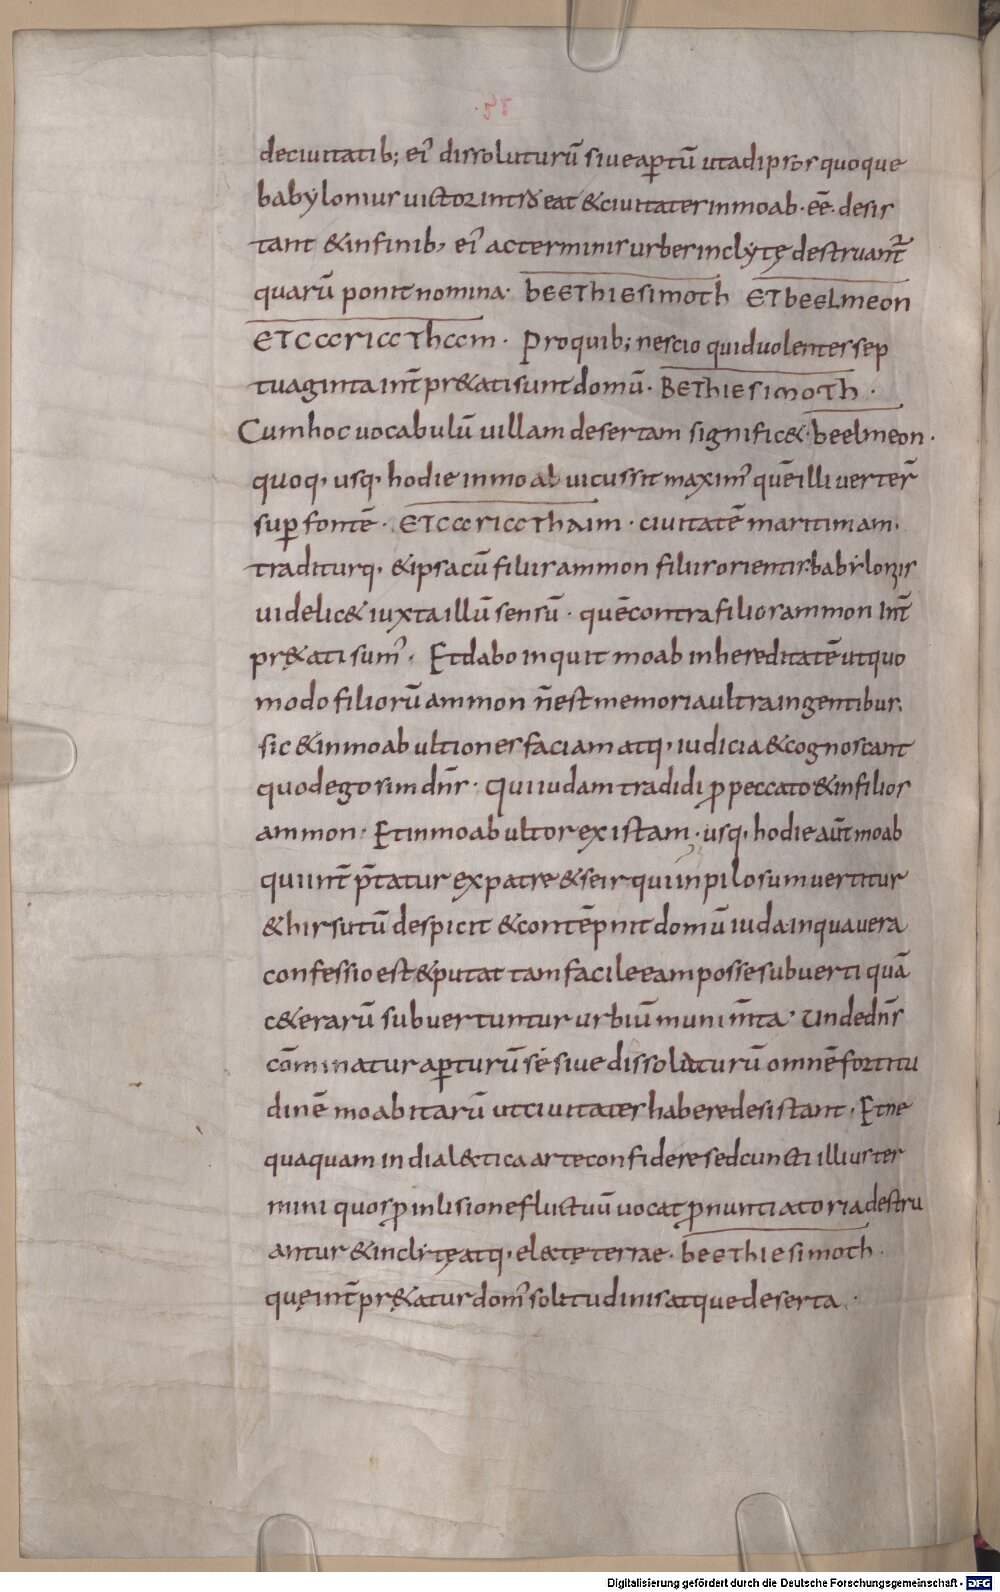 deciuitatib; ei᾿ dissoluturū siue aptū utadipsos quoque
babylonius uictor introeat &ciuitates inmoab·eē·desis
tant &infinib, ei᾿ acterminis urbes inclytę destruant᷑
quarū ponit nomina· beeThiesimoth ETbeeLmeon
ETCccriccThccm· Proquib; nescio quid uolentes sep
tuaginta int̄pr&ati sunt domū· BeThiesimoTh·
Cumhoc uocabulū uillam desertam signific&·beelmeon·
quoq, usq, hodie inmoab uicus sit maxim᾿ quē illi uerter̄
sup fontē· ETccriccThaim· ciuitatē maritimam.
traditurq, &ipsa cū filiis ammon filiis orientis·babylonis
uidelic& iuxta illū sensū· quē contra filios ammon int̄
pr&ati sum᾿. Et dabo inquit moab in hereditatē ut quo
modo filiorū ammon n̄ est memoria ultra ingentibus,
sic &inmoab ultiones faciam atq, iudicia &cognoscant
quod ego sim dn̄s· Qui iudam tradidi p peccato &infilios
ammon· Et inmoab ultor existam· usq, hodie aūt moab
qui int̄ p̄tatur expatre &seir qui inpilosum uertitur
&hirsutū despicit &contēpnit domū iuda inqua uera
confessio est &putat tam facile eam posse subuerti quā
c&erarū subuertuntur urbiū munim̄ta· Unde dn̄s
cōminatur apturū sé siue dissoluturū omnē fortitu
dinē moabitarū ut ciuitates habere desistant· Et ne
quaquam in dial&tica arte confidere sed cuncti illius ter
mini quos p inlisione fluctuū uocat pnuntiatoria destru
antur &inclytę atq, el&tę terrae· beeThiesimoth·
quę int̄pr&atur dom᾿ solitudinis atque deserta·
Digitalisierung gefördert durch die Deutsche Forschungsgemeinschaft - DFG